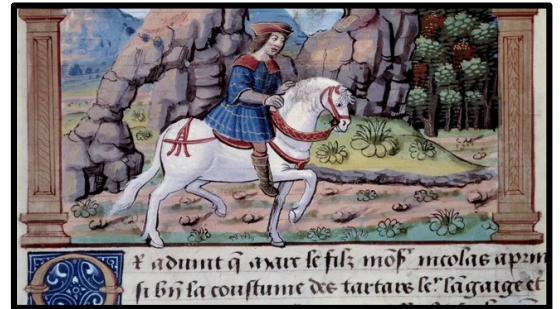 Or aduint q̄ marc le filz mos^r nicolas aprin
si bn̄ la coustume des tartars le^r lāgaige et